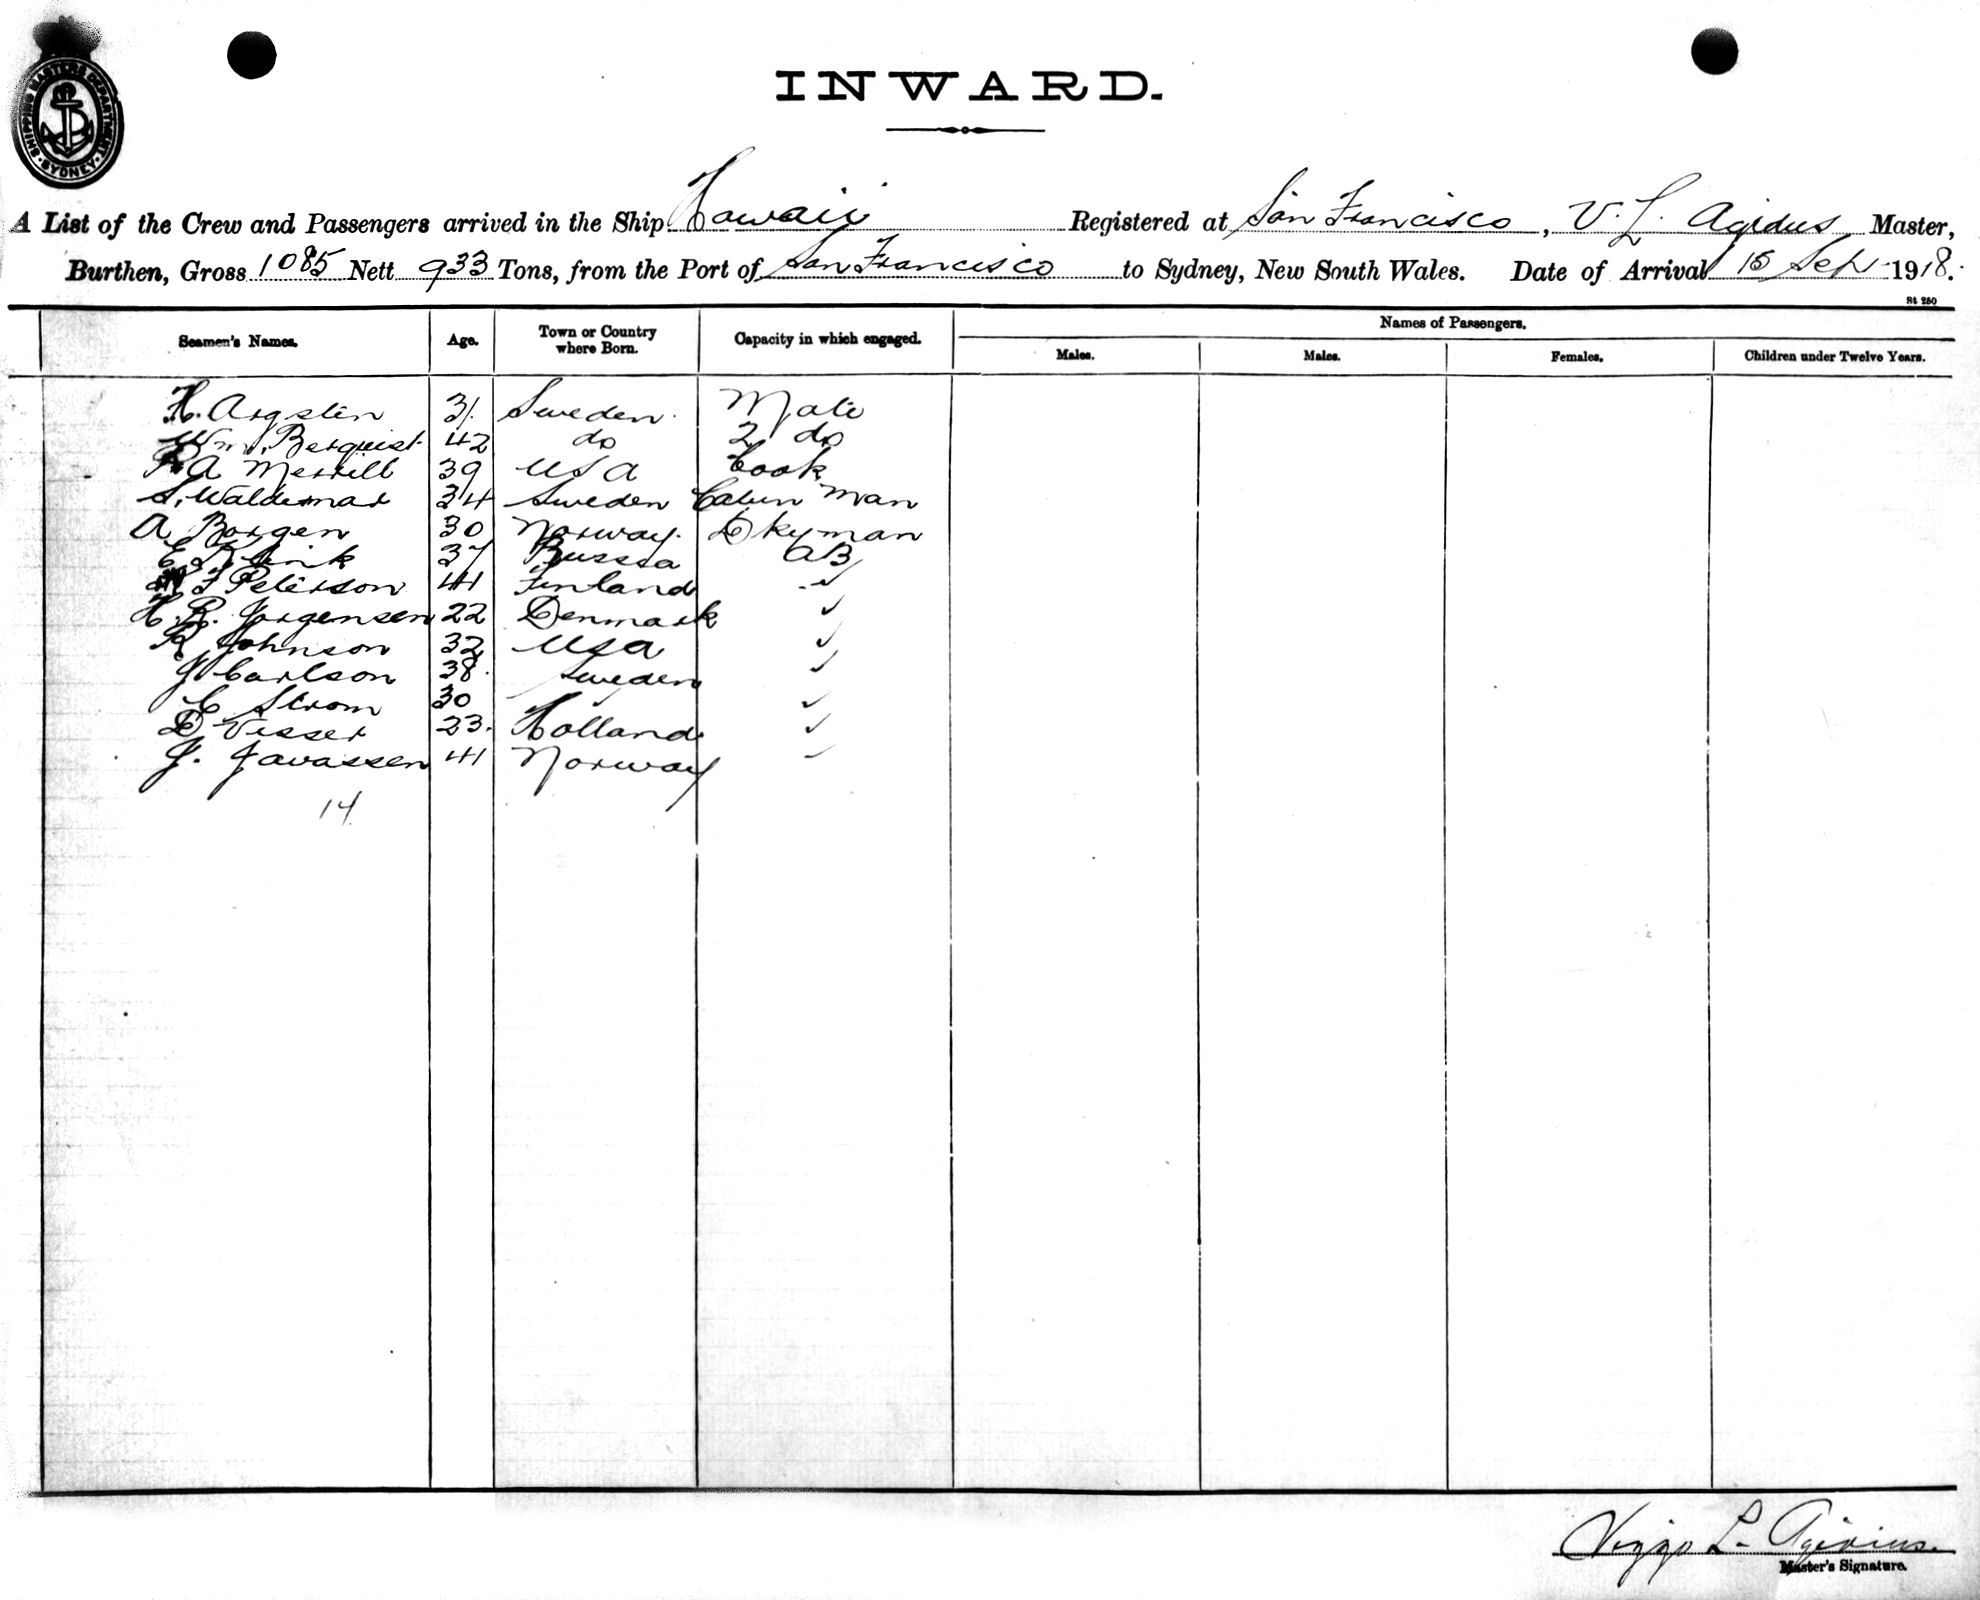 SHIPPING MASTERS DEPARTMENT
SYDNEY
INWARD.
A List of the Crew and Passengers arrived in the Ship Hawaii Registered at San Francisco, V. L. Agidus Master,
Burthen, Gross 1085 Nett 933 Tons, from the Port of San Francisco to Sydney, New South Wales. Date of Arrival 15 Sep 1918.
St 250
Seamen's Names. Age. Town or Country where Born. Capacity in which engaged. Names of Passengers.
Males. Males. Females. Children under Twelve Years.
H. Argsten 31. Sweden. Mate
Wm. Berquist 42 do 2 do
R A Merrill 39 USA Cook
S. Waldemar 34 Sweden Cabin man
A Borgen 30 Norway. Dkyman
E 37 Russia AB
F Peterson 41 Finland ✓
H. R. Jorgensen 22 Denmark ✓
R Johnson 32 USA ✓
J Carlson 38. Sweden ✓
C Strom 30 ✓
D Visser 23. Holland ✓
J. Javassen 41 Norway ✓
14
Viggo L. Agidius.
Master's Signature.